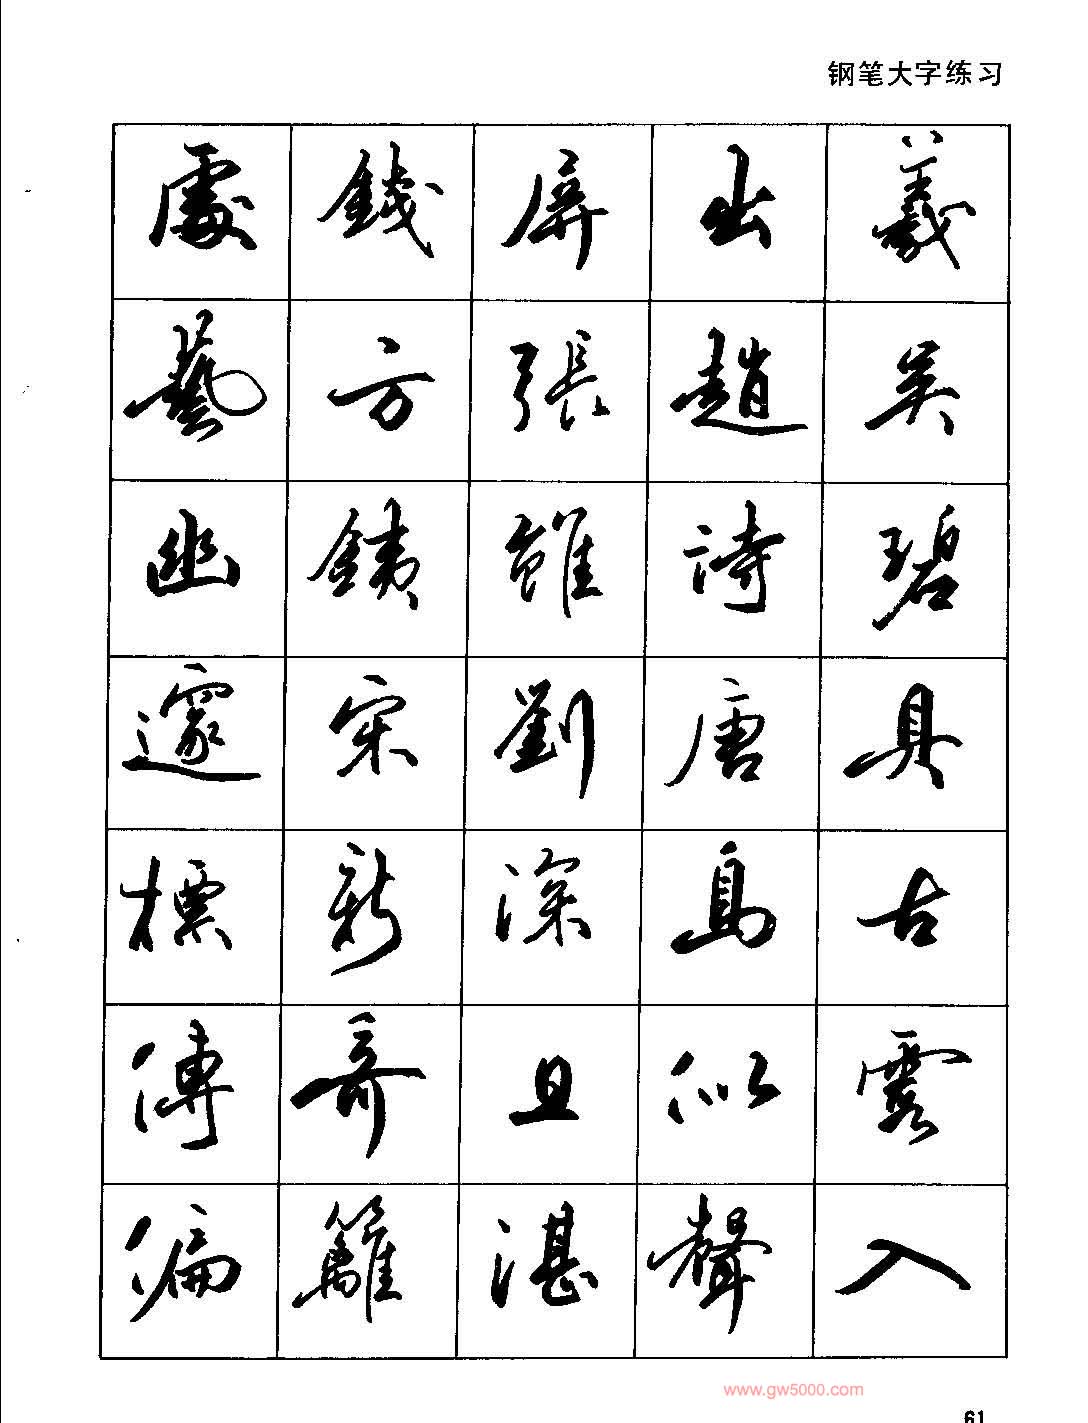 钢笔大字练习
處 錢 屏 出 羲
藝 方 張 趙 吴
幽 銕 雖 詩 碧
邃 宋 劉 唐 具
標 新 深 島 古
傳 奇 且 似 露
偏 籬 湛 聲 入
www.gw5000.com
61